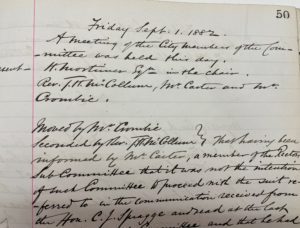 50
Friday Sept. 1. 1882.
A meeting of the City Members of the Com-
mittee was held this day.
H. Mortimer Esqre in the chair.
Rev. J. H. McCollum, Mr. Carter and Mr.
Crombie.
Moved by Mr. Crombie
Seconded by Rev. J H McCollum } That having been
informed by Mr. Carter, a member of the Rectory
Sub Committee that it was not the intention
of such Committee to proceed with the suit re-
ferred to in the communication received from
the Hon. C. J. Spragge and read at the last
and that he had